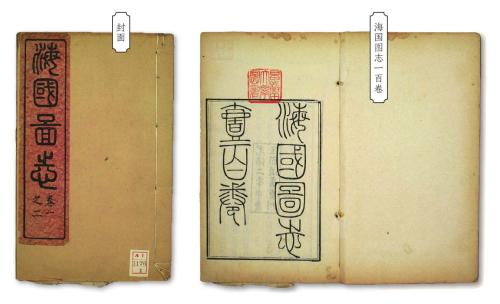 封面
海國圖志
卷一
之二
海国图志一百卷
海國圖志
壹百卷